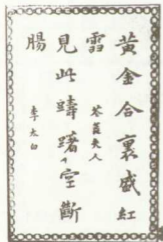 黃金合裏盛紅
雪　花蕊夫人
見此躊躇空斷
腸　李太白